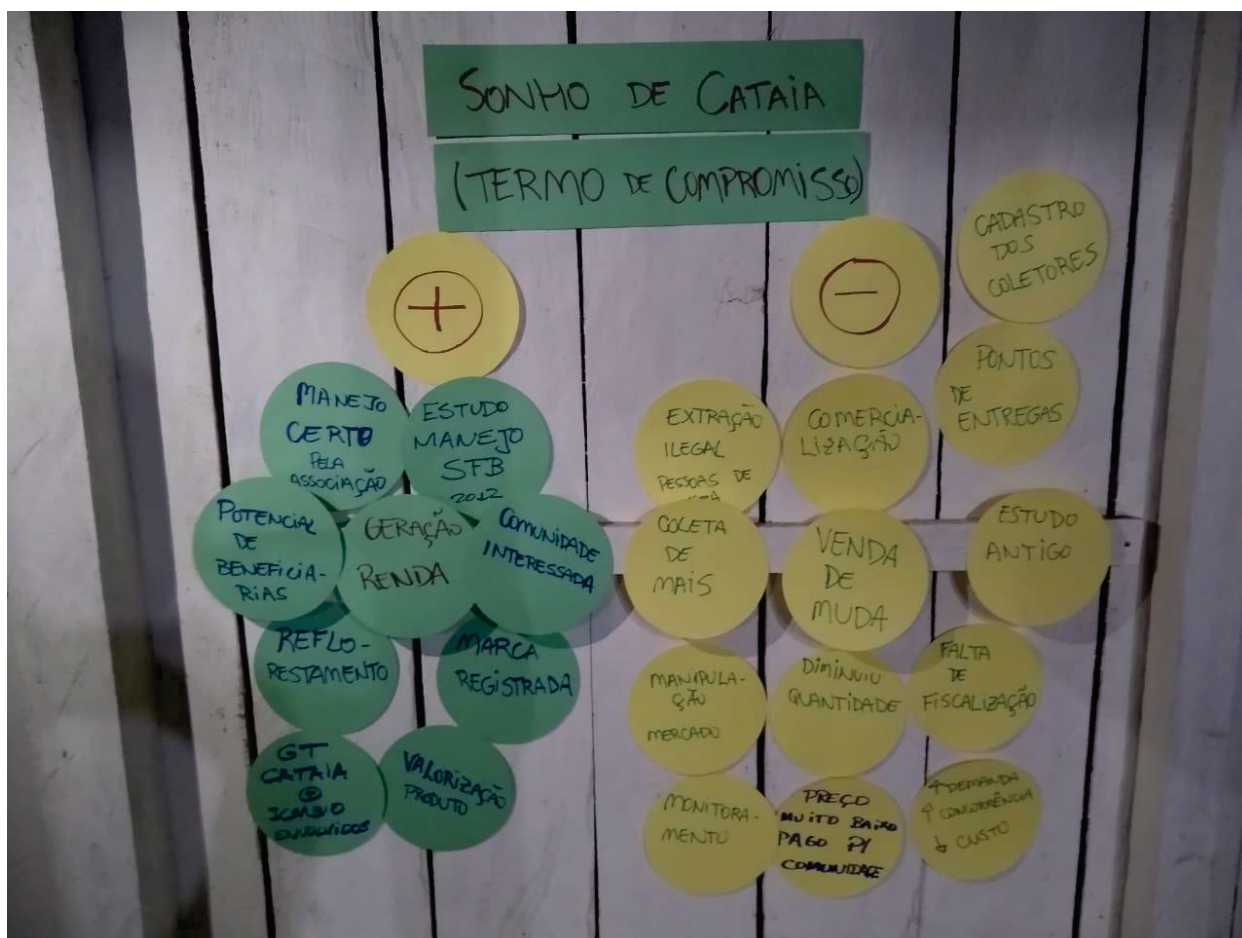 SONHO DE CATAIA
(TERMO DE COMPROMISSO)
+
MANEJO
CERTO
PELA
ASSOCIAÇÃO
ESTUDO
MANEJO
SFB
2012
POTENCIAL
DE
BENEFICIA-
RIAS
GERAÇÃO
RENDA
COMUNIDADE
INTERESSADA
REFLO-
RESTAMENTO
MARCA
REGISTRADA
GT
CATAIA
ICMBIO
ENVOLVIDOS
VALORIZAÇÃO
PRODUTO
-
CADASTRO
DOS
COLETORES
PONTOS
DE
ENTREGAS
EXTRAÇÃO
ILEGAL
PESSOAS DE
COMERCIA-
LIZAÇÃO
COLETA
DE
MAIS
VENDA
DE
MUDA
ESTUDO
ANTIGO
MANIPULA-
ÇÃO
MERCADO
DIMINUIU
QUANTIDADE
FALTA
DE
FISCALIZAÇÃO
MONITORA-
MENTO
PREÇO
MUITO BAIXO
PAGO P/
COMUNIDADE
↑ DEMANDA
↑ CONCORRÊNCIA
↓ CUSTO